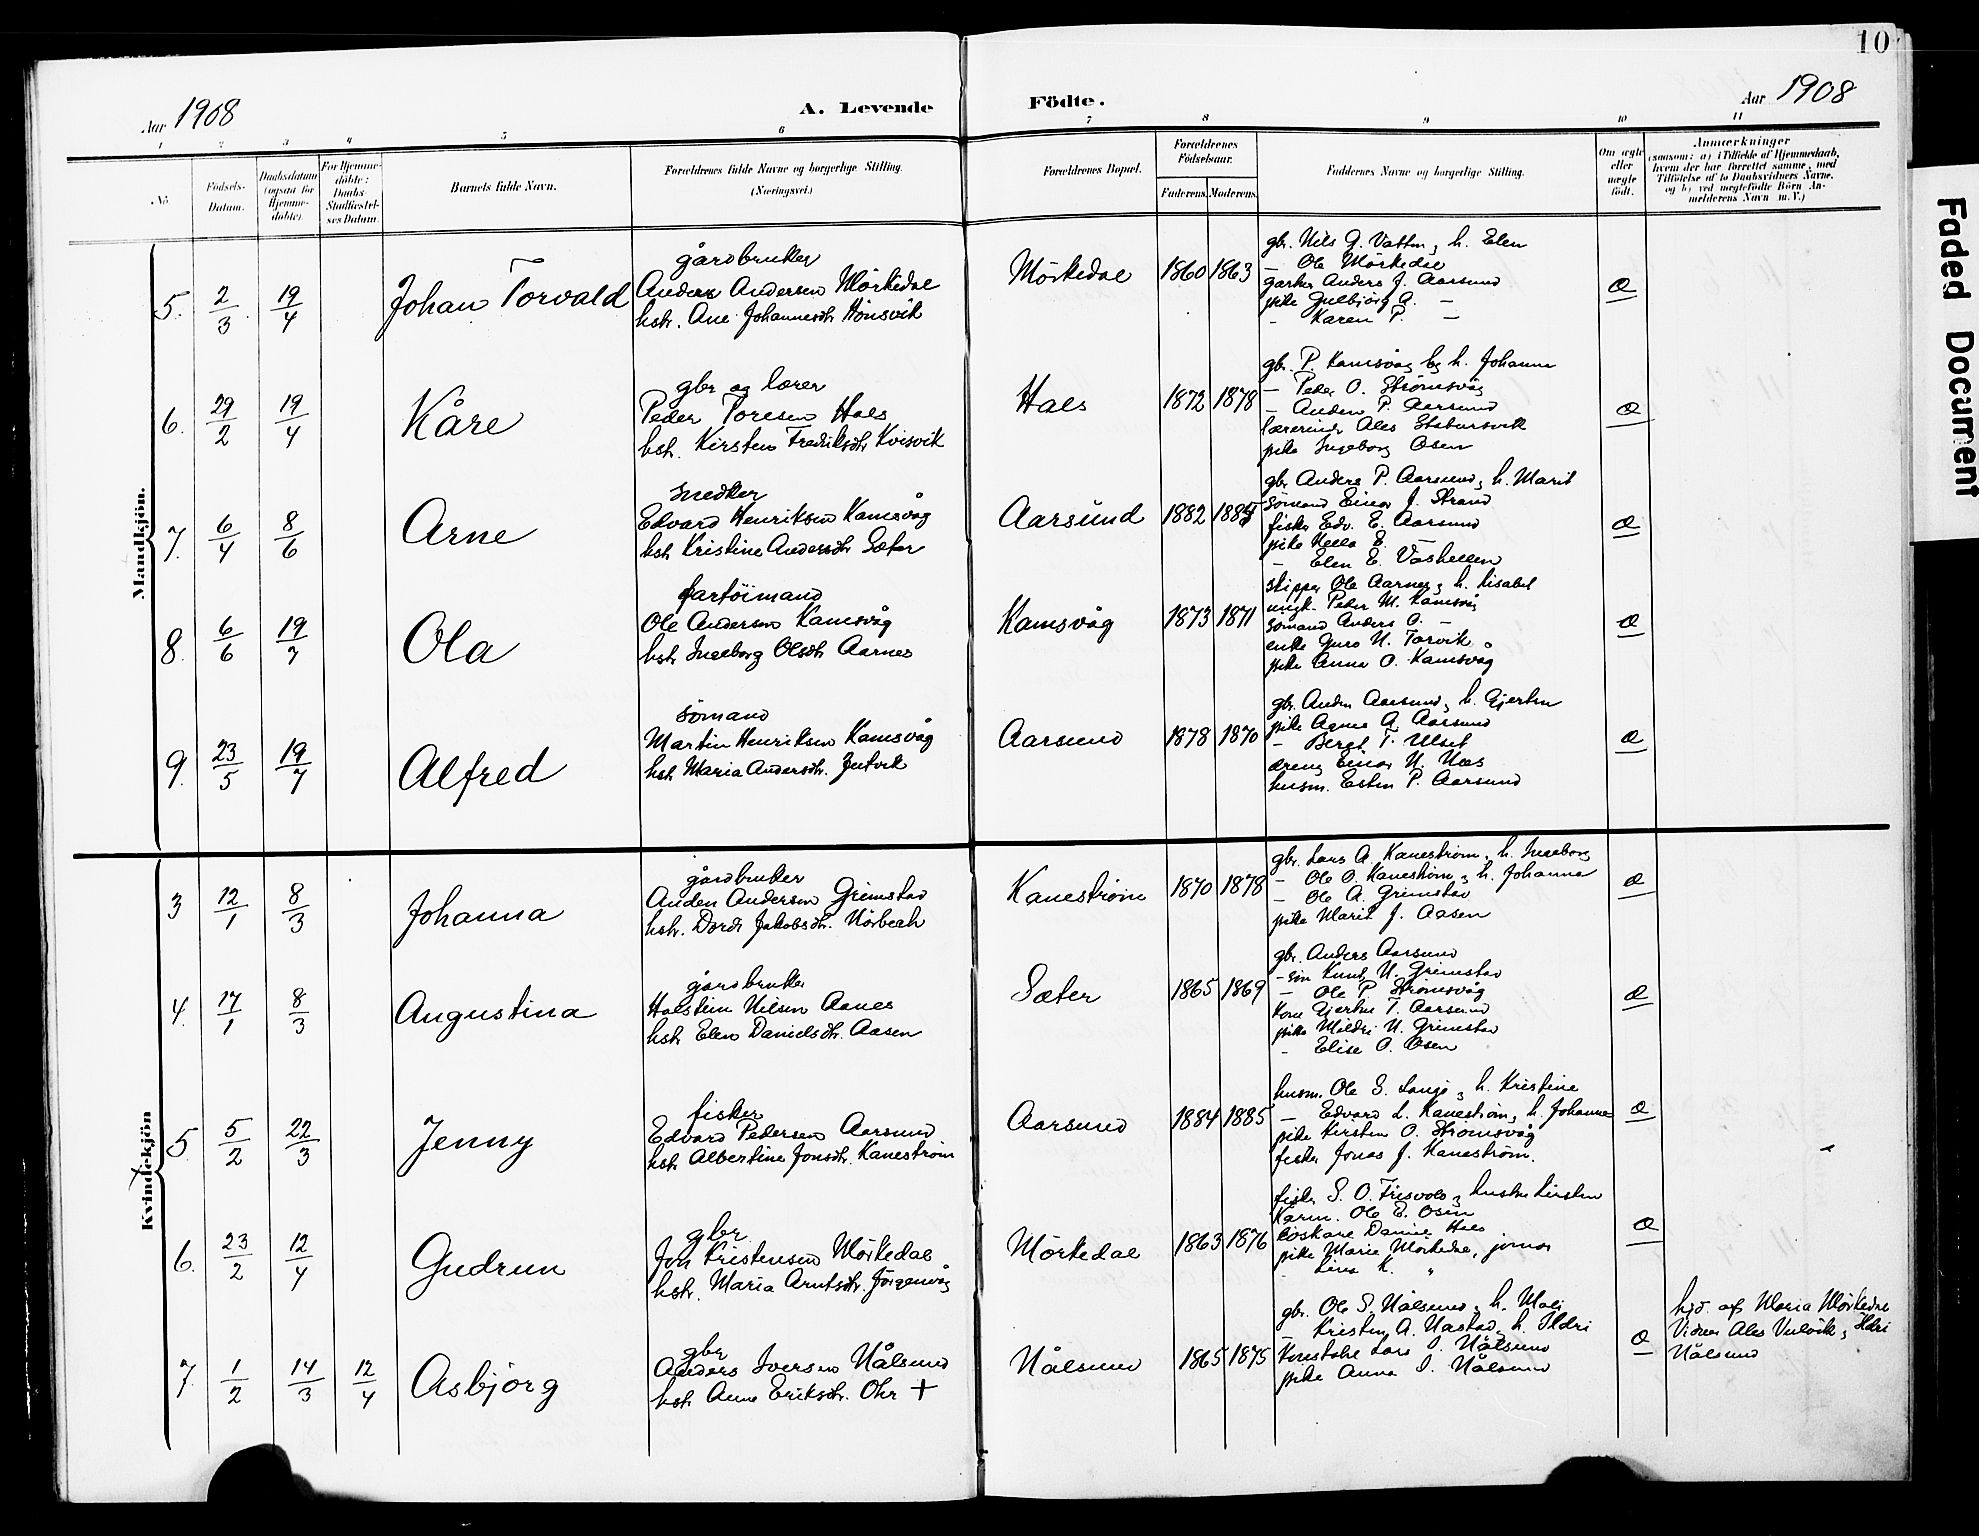 10
Aar 1908
A. Levende Födte.
Aar 1908
1 2 3 4 5 6 7 8 9 10 11
No
Födsels-Datum.
Daabsdatum (ogsaa for Hjemmedøbte).
For Hjemmedøbte: Daabs-Stadfæstelses Datum.
Barnets fulde Navn.
Forældrenes fulde Navne og borgerlige Stilling. (Næringsvei.)
Forældrenes Bopæl.
Forældrenes Födselsaar.
Faderens. Moderens.
Faddernes Navne og borgerlige Stilling.
Om ægte eller uægte født.
Anmærkninger
(saasom: a) i Tilfælde af Hjemmedaab, hvem der har forrettet samme, med Tilføielse af to Daabsvidners Navne, og b) ved uægtefödte Börn Anmelderens Navn m. V.)
Mandkjön.
5. 2/3 19/4 Johan Torvald
gårdbruker
Anders Andersen Mörkedal
hstr. Ane Johannesdtr Hönsvik
Mörkedal 1860 1863
gbr. Nils G. Vatten, h. Elen
— Ole Mörkedal
Anders J. Aarsund
pike Gulbjörg A. —
- Karen P. —
Æ
6. 29/2 19/4 Kåre
gbr og lærer
Peder Toresen Hals
hstr. Kirsten Fredriksdtr Kvisvik
Hals 1872 1878
gbr. P. Kamsvåg og h. Johanna
— Peder O. Strömsvåg
— Anders P. Aarsund
lærerinde Ales Stabursvik
pike Ingeborg Osen
Æ
7. 6/4 8/6 Arne
snedker
Edvard Henriksen Kamsvåg
hstr Kristine Andersdtr Sæter
Aarsund 1882
gbr Anders P. Aarsund, h. Marit
sömand Einar J. Strand
fisker Edv. E. Aarsund
pike E. —
- Elen E.
Æ
8. 6/6 19/7 Ola
fartöimand
Ole Andersen Kamsvåg
hstr Ingeborg Olsdtr Aarnes
Kamsvåg 1873 1871
skipper Ole Aarnes, h. Lisabet
ungk. Peter M. Kamsvåg
sömand Anders O. —
enke Guro N. Torvik
pike Anna O. Kamsvåg
Æ
9. 23/5 19/7 Alfred
sömand
Martin Henriksen Kamsvåg
hstr Maria Andersdtr.
Aarsund 1878 1870
gbr. Anders Aarsund, h. Gjertru
pike Agnes A. Aarsund
- Beret T. Ulset
dreng Einar N. Næs
husm. Esten P. Aarsund
Æ
Kvindekjön
3 12/1 8/3 Johanna
gårdbruker
Anders Andersen Grimstad
hstr. Dordi Jakobsdtr. Nörbech
Kaneström 1870 1878
gbr. Lars A. Kaneström, h. Ingeborg
— Ole O. Kaneström, h. Johanna
- Ole A. Grimstad
pike Marit J. Aasen
Æ
4. 17/1 8/3 Augustina
gårdbruker
Halstein Nilsen Aanes
hstr Elen Danielsdtr. Aasen
Sæter 1865 1869
gbr. Anders Aarsund
- sön Knut N. Grimstad
- Ole P. Strömsvåg
Kone Gjertru T. Aarsund
pike Mildri N. Grimstad
- Elise O. Osen
Æ
5. 5/2 22/3 Jenny
fisker
Edvard Pedersen Aarsund
hstr Albertine Jonsdtr. Kaneström
Aarsund 1884 1885
husm. Ole S. Lange, h. Kristine
— Edvard L. Kaneström, h. Johanne
pike Kirsten O. Strömsvåg
fisker Jonas J. Kaneström.
Æ
6. 23/2 12/4 Gudrun
gbr
Jon Kristensen Mörkedal
hstr. Maria Arntsdtr. Jörgenvåg
Mörkedal 1863 1876
fisker S. O. Frisvold, hustru Kirsten
Ole E. Osen
löskar Daniel Hals
pike Marie Mörkedal,
- Lina K. "
Æ
7. 1/2 14/3 12/4 Asbjörg
gbr
Anders Iversen Nålsund
hstr Anne Eriksdtr. Ohr +
Nålsund 1865 1875
gbr. Ole S. Nålsund, h. Mali
— Kristen A. Nastad, h. Ildri
Lars I. Nålsund
pike Anna I. Nålsund
Æ
hjd. af Maria Mörkedal
Vidner Ales Vulvik, Ildri
Nålsund
Faded Document